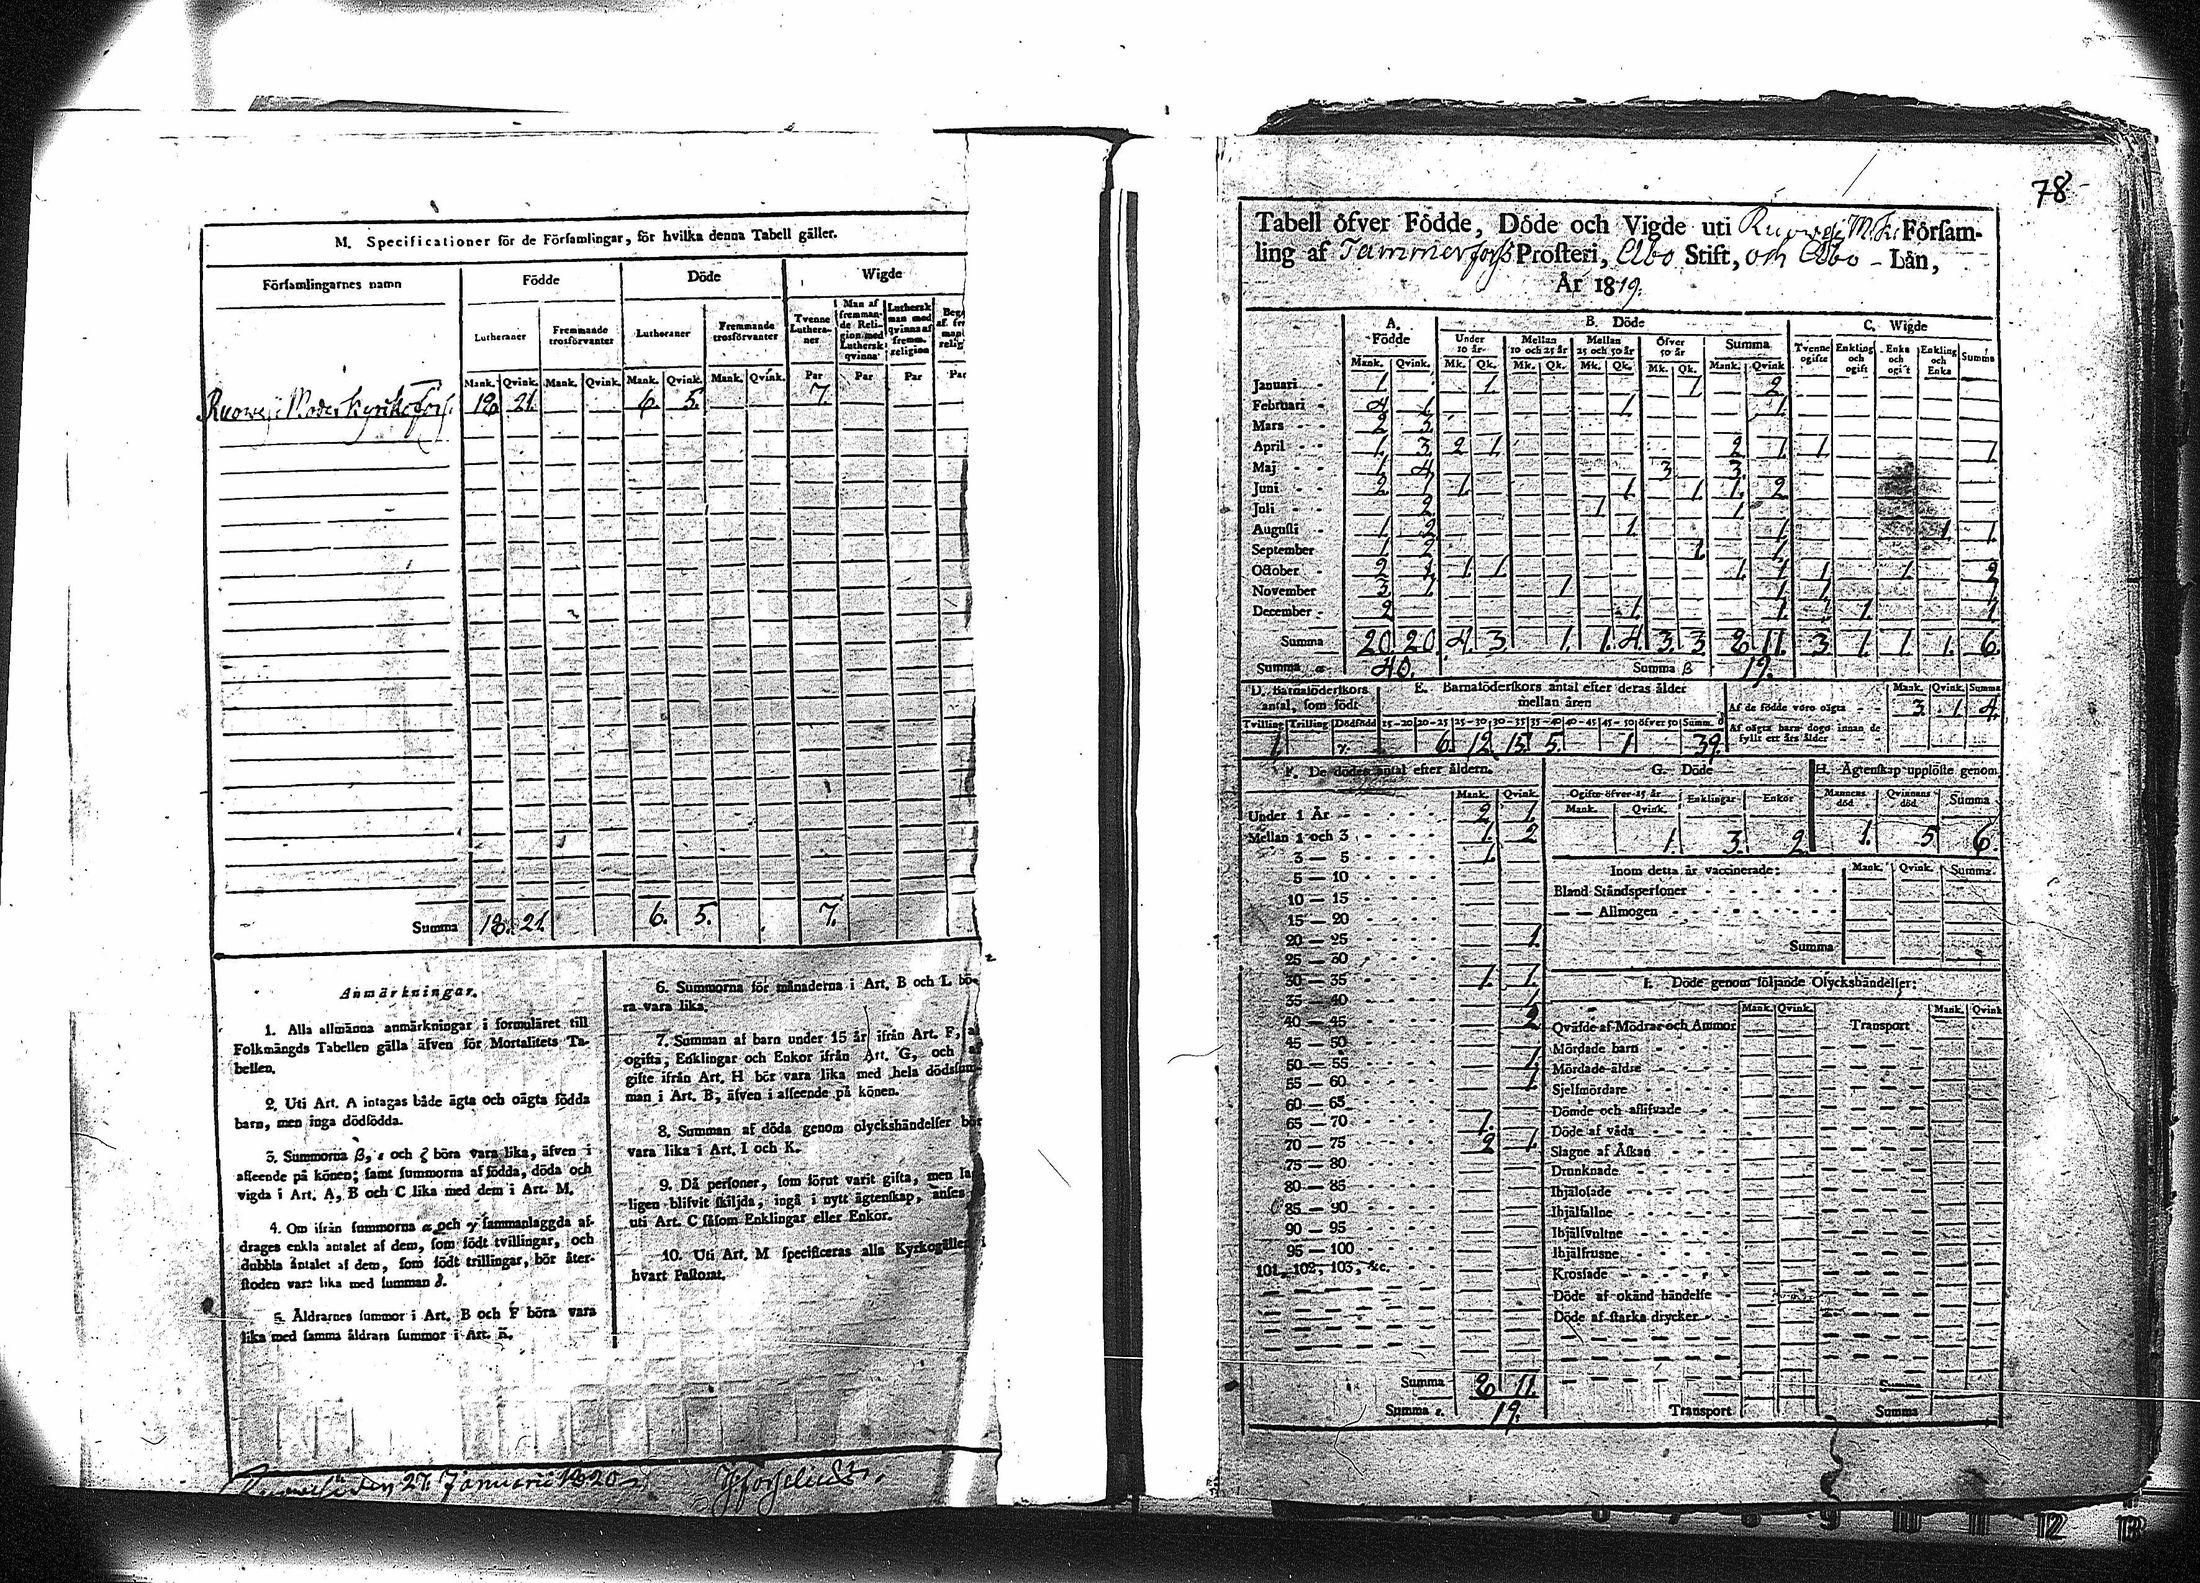 M. Specificationer för de Församlingar, för hvilka denna Tabell gäller.
Församlingarnes namn Födde Döde Wigde
Lutheraner Fremmande trosförvanter Lutheraner Fremmande trosförvanter Tvenne Lutheraner Man af fremmande Religion med Luthersk qvinna Luthersk man med qvinna af fremm. religion
Mank. Qvink. Mank. Qvink. Mank. Qvink. Mank. Qvink. Par Par Par Par
Ruowesi Moder Kyrko Förs. 18 21. 6. 5. 7.
Summa 18. 21. 6. 5. 7.
Anmärkningar.
1. Alla allmänna anmärkningar i formuläret till
Folkmängds Tabellen gälla äfven för Mortalitets Ta-
bellen.
2. Uti Art. A intagas både ägta och oägta födda
barn, men inga dödfödda.
3. Summorna β, ε och ζ böra vara lika, äfven i
afseende på könen; samt summorna af födda, döda och
vigda i Art. A, B och C lika med dem i Art. M.
4. Om ifrån summorna α och γ sammanlaggda af-
drages enkla antalet af dem, som födt tvillingar, och
dubbla antalet af dem, som födt trillingar, bör åter-
stoden vara lika med summan δ.
5. Åldrarnes summor i Art. B och F böra vara
lika med samma åldrars summor i Art. K.
6. Summorna för månaderna i Art. B och L bö-
ra vara lika.
7. Summan af barn under 15 år ifrån Art. F,
ogifta, Enklingar och Enkor ifrån Art. G, och
gifte ifrån Art. H bör vara lika med hela dödssum-
man i Art. B, äfven i afseende på könen.
8. Summan af döda genom olyckshändelser bör
vara lika i Art. I och K.
9. Då personer, som förut varit gifta, men
ligen blifvit skiljda, ingå i nytt ägtenskap, anses
uti Art. C såsom Enklingar eller Enkor.
10. Uti Art. M specificeras alla Kyrkogäller i
hvart Pastorat.
Ruowesi den 27. Januarii 1820
78
Tabell öfver Födde, Döde och Vigde uti Ruowesi M. K. Församling
af Tammerforss Prosteri, Åbo Stift, och Åbo Län,
År 1819.
A. Födde B. Döde C. Wigde
Under 10 år Mellan 10 och 25 år Mellan 25 och 50 år Öfver 50 år Summa Tvenne ogifte Enkling och ogift Enka och ogift Enkling och Enka Summa
Mank. Qvink. Mk. Qk. Mk. Qk. Mk. Qk. Mk. Qk. Mank. Qvink
Januari 1 1 1 2
Februari 4 1 1 1
Mars 2 3
April 1 3 2 1 2 1 1 1
Maj 1 4 3 3
Juni 2 1 1 1 1 1 2
Juli 2 1 1
Augusti 1 2 1 1 1 1
September 1 2 1 1
October 2 1 1 1 1 1 1 1 2
November 3 1 1 1 1 1
December 2 1 1 1 1
Summa 20. 20. 4. 3. 1. 1. 4. 3. 3. 8. 11. 3. 1. 1. 1. 6.
Summa α 40. Summa β 19.
D. Barnaföderskors antal, som födt E. Barnaföderskors antal efter deras ålder mellan åren Mank. Qvink. Summa
Af de födde voro oägta 3. 1. 4.
Tvilling Trilling Dödfödd 15-20 20-25 25-30 30-35 35-40 40-45 45-50 öfver 50 Summ. δ
Af oägta barn dogo innan de fyllt ett års ålder
1 γ 6. 12. 15. 5. 1 39.
F. De dödes antal efter åldern. G. Döde H. Ägtenskap upplöste genom
Mank. Qvink. Ogifte öfver 15 år Mank. Qvink. Enklingar Enkor Mannens död Qvinnans död Summa
1. 3. 2. 1. 5 6
Under 1 År 2 1.
Mellan 1 och 3 1. 2
3 — 5 1.
5 — 10
10 — 15
15 — 20
20 — 25 1.
25 — 30
30 — 35 1. 1.
35 — 40 1
40 — 45 2
45 — 50
50 — 55 1
55 — 60 1
60 — 65
65 — 70 1.
70 — 75 2 1.
75 — 80
80 — 85
85 — 90
90 — 95
95 — 100
101, 102, 103, &c.
Summa 8 11.
Summa ε. 19.
Inom detta år vaccinerade: Mank. Qvink. Summa
Bland Ståndspersoner
— — Allmogen
Summa
I. Döde genom följande Olyckshändelser:
Mank. Qvink. Mank. Qvink
Qväfde af Mödrar och Ammor Transport
Mördade barn
Mördade äldre
Sjelfmördare
Dömde och aflifvade
Döde af våda
Slagne af Åskan
Drunknade
Ihjälosade
Ihjälfallne
Ihjälsvultne
Ihjälfrusne
Krossade
Döde af okänd händelse
Döde af starka drycker
Transport Summa
8 9 10 11 12 13